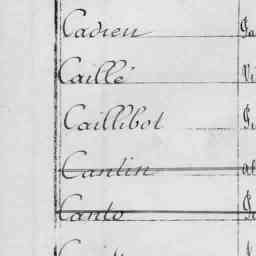 Cadieu
Caillé
Caillibot
Cantin
Canto